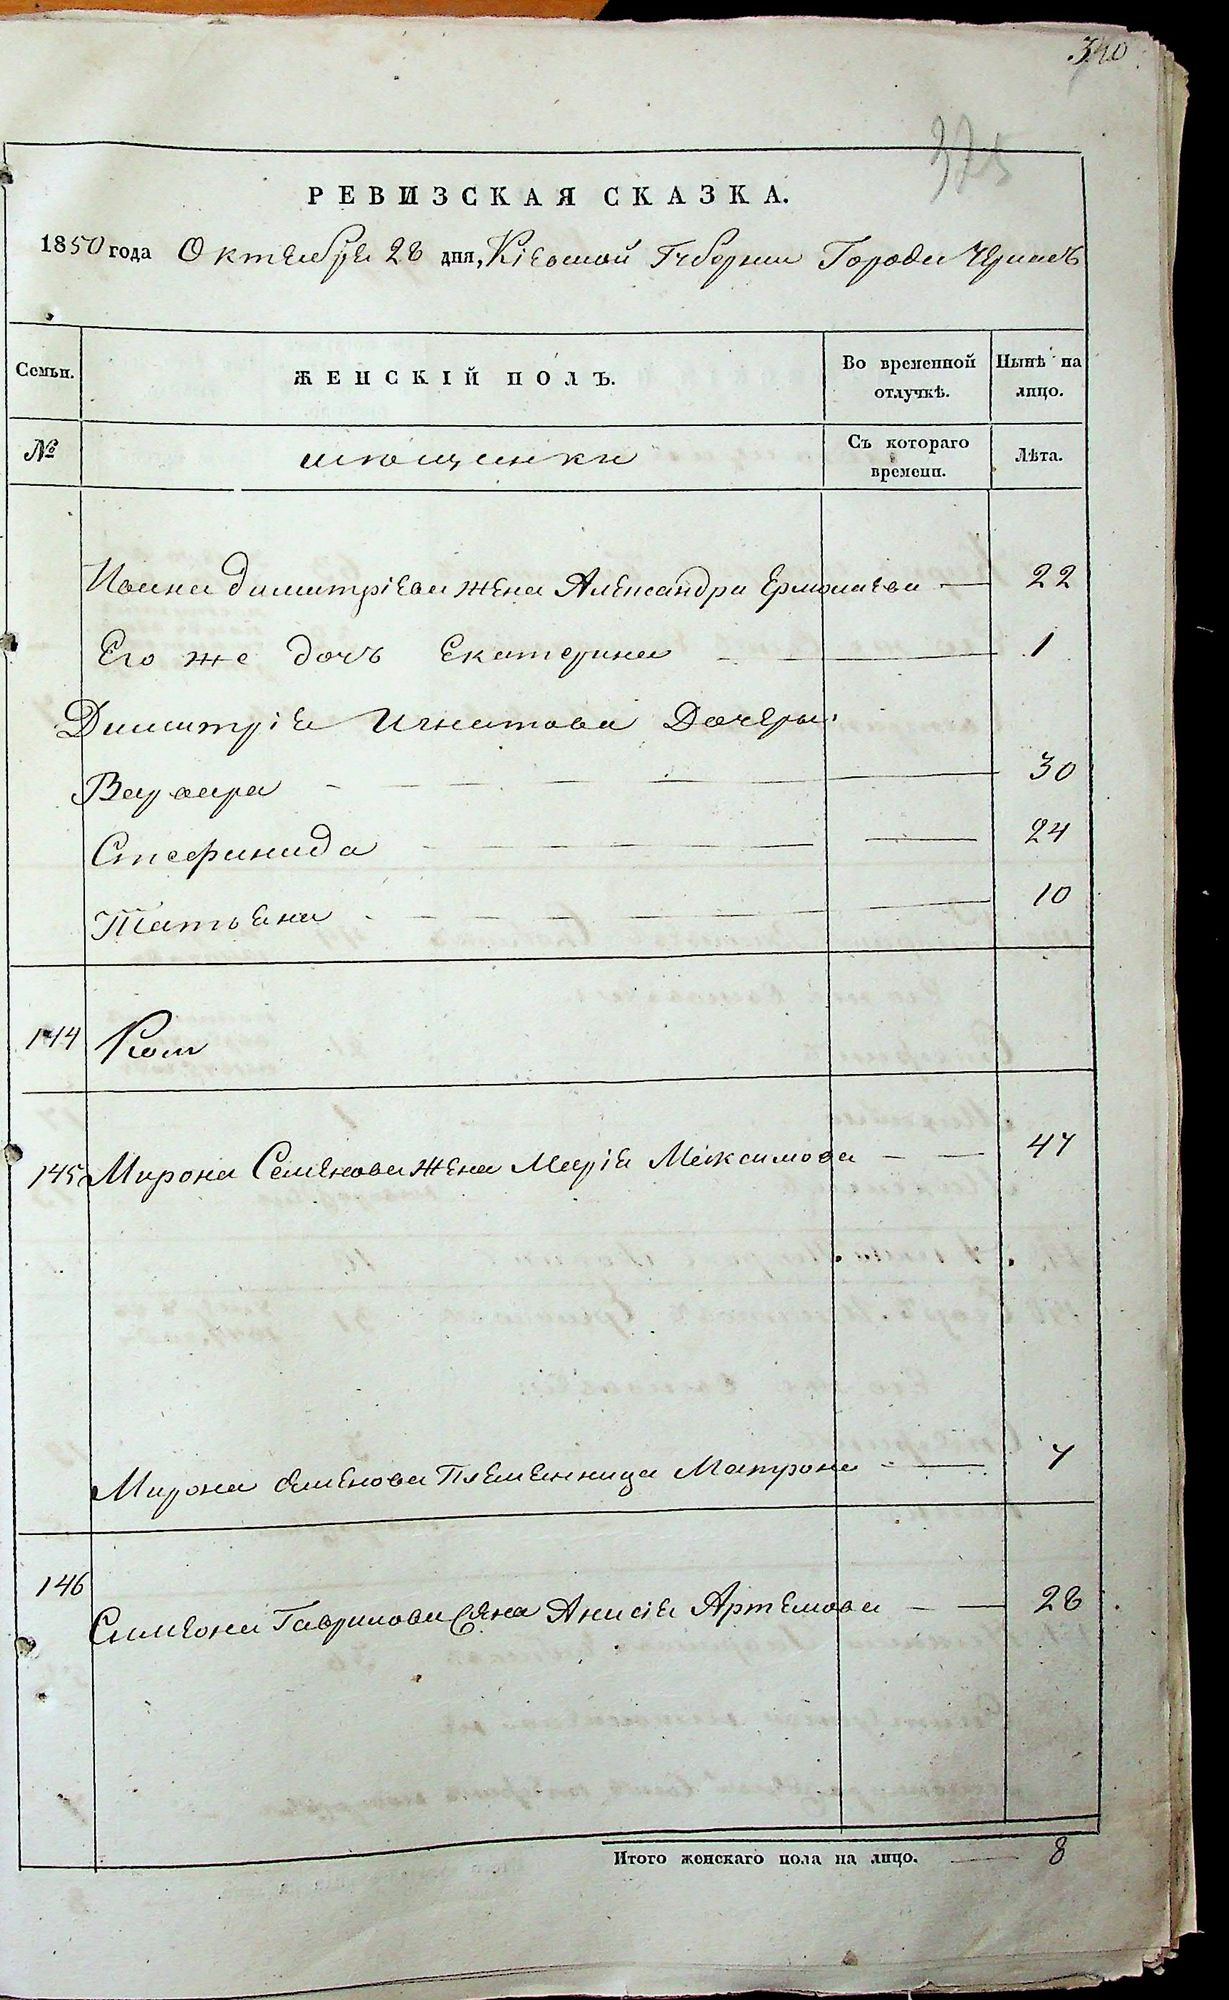 340
375
РЕВИЗСКАЯ СКАЗКА.
1850 года Октября 28 дня, Кіевской Губерніи Города Черкасъ
Семьи. ЖЕНСКІЙ ПОЛЪ. Во временной отлучкѣ. Нынѣ на лицо.
№ мѣщанки Съ котораго времени. Лѣта.
Ивана Димитріева жена Александра Ермолаева — 22
Его же дочь Екатерина — 1
Димитрія Игнатова Дочери:
Варвара — 30
Стефанида — 24
Татьяна — 10
144
145 Мирона Семенова жена Марія Максимова — 47
Мирона Семенова Племенница Матрона — 7
146
Симеона Гаврилова жена Анисія Артемова — 28
Итого женскаго пола на лицо. — 8